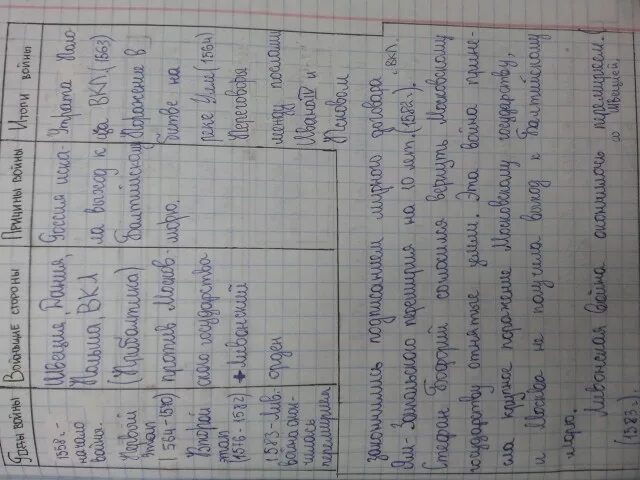 Годы войны
Воюющие стороны
Причины войны
Итоги войны
1558.-
начало
война.
Первый
этап
(1564-1570)
Второй
этап
(1576-1582)
1583-Лив.
война окон-
чилась
перемирием
Швеция, Дания,
Польша, ВКЛ
(Прибалтика)
против Москов-
ского государства
+ Ливонский
орден
Россия иска-
ла выход к
Балтийскому
морю.
Утрата Поло-
цка ВКЛ. (1563)
Поражение в
битве на
реке Улле (1564)
Переговоры
между послами
Ивана IV и
Псковом
закончились подписанием мирного договора
Ям-Запольского перемирия на 10 лет. (1582г.). ВКЛ.
Стефан Баторий согласился вернуть Московскому
государству отнятые земли. Эта война прине-
сла крупное поражение Московскому государству,
и Москва не получила выход к Балтийскому
морю.
Ливонская война окончилась перемирием
(1583г.) со Швецией.